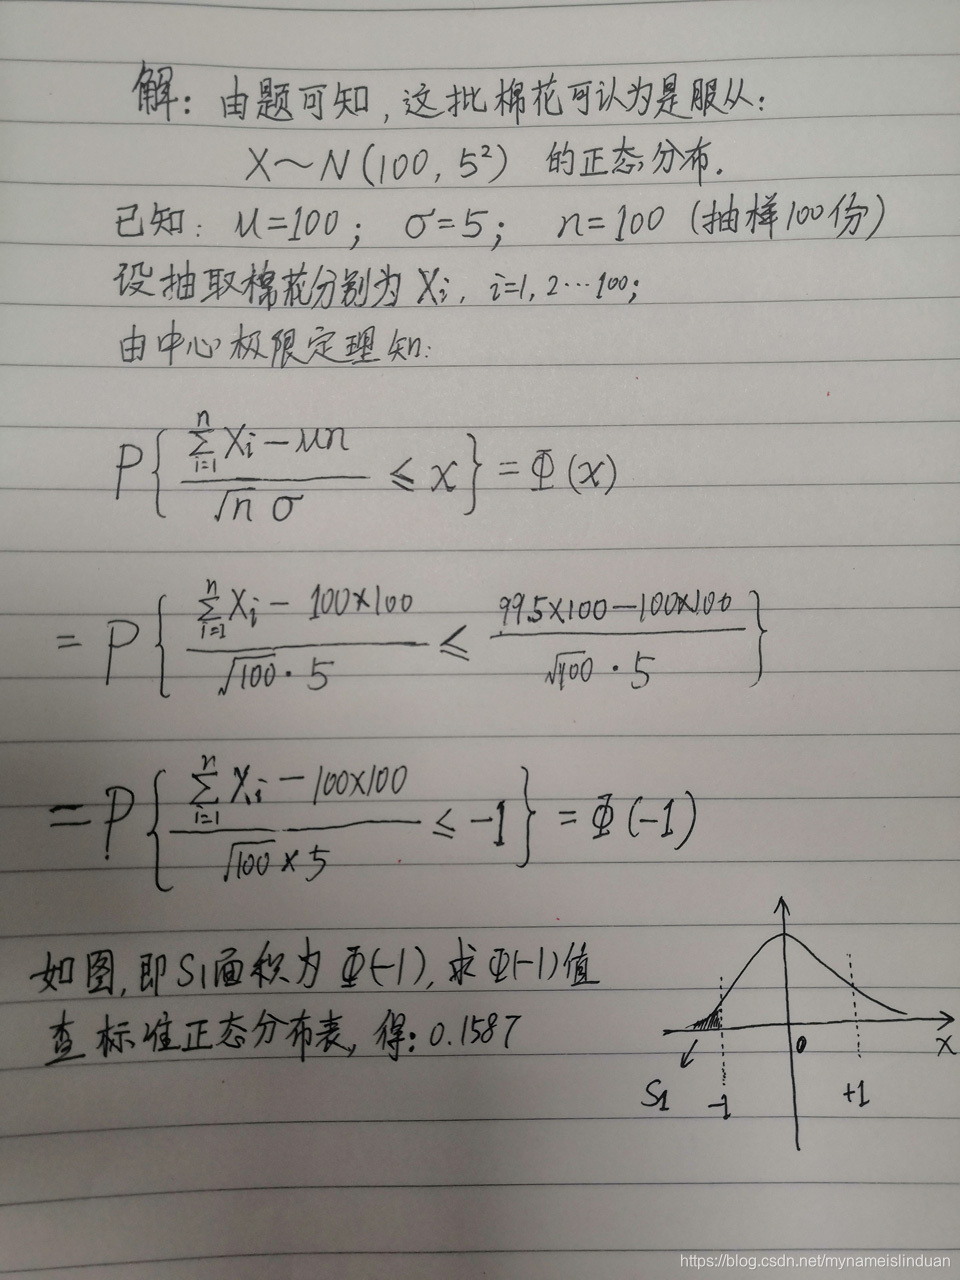 解：由题可知，这批棉花可认为是服从：
X～N(100, 5²) 的正态分布.
已知：μ=100； σ=5； n=100 (抽样100份)
设抽取棉花分别为 Xi, i=1, 2…100;
由中心极限定理知:
P{ (∑_{i=1}^{n} Xi − μn) / (√n σ) ≤ x } = Φ(x)
= P{ (∑_{i=1}^{n} Xi − 100×100) / (√100 · 5) ≤ (99.5×100−100×100) / (√100 · 5) }
= P{ (∑_{i=1}^{n} Xi − 100×100) / (√100 × 5) ≤ −1 } = Φ(−1)
如图, 即S1面积为 Φ(−1), 求Φ(−1)值
查标准正态分布表, 得: 0.1587
0
x
S1
−1
+1
https://blog.csdn.net/mynameislinduan